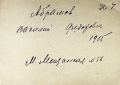 № 7
Абрамов
Василий Федорович
1915
М. Мещанская № 56